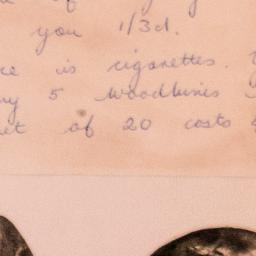 of
you 1/3d.
is cigarettes.
5 Woodbines
of 20 costs